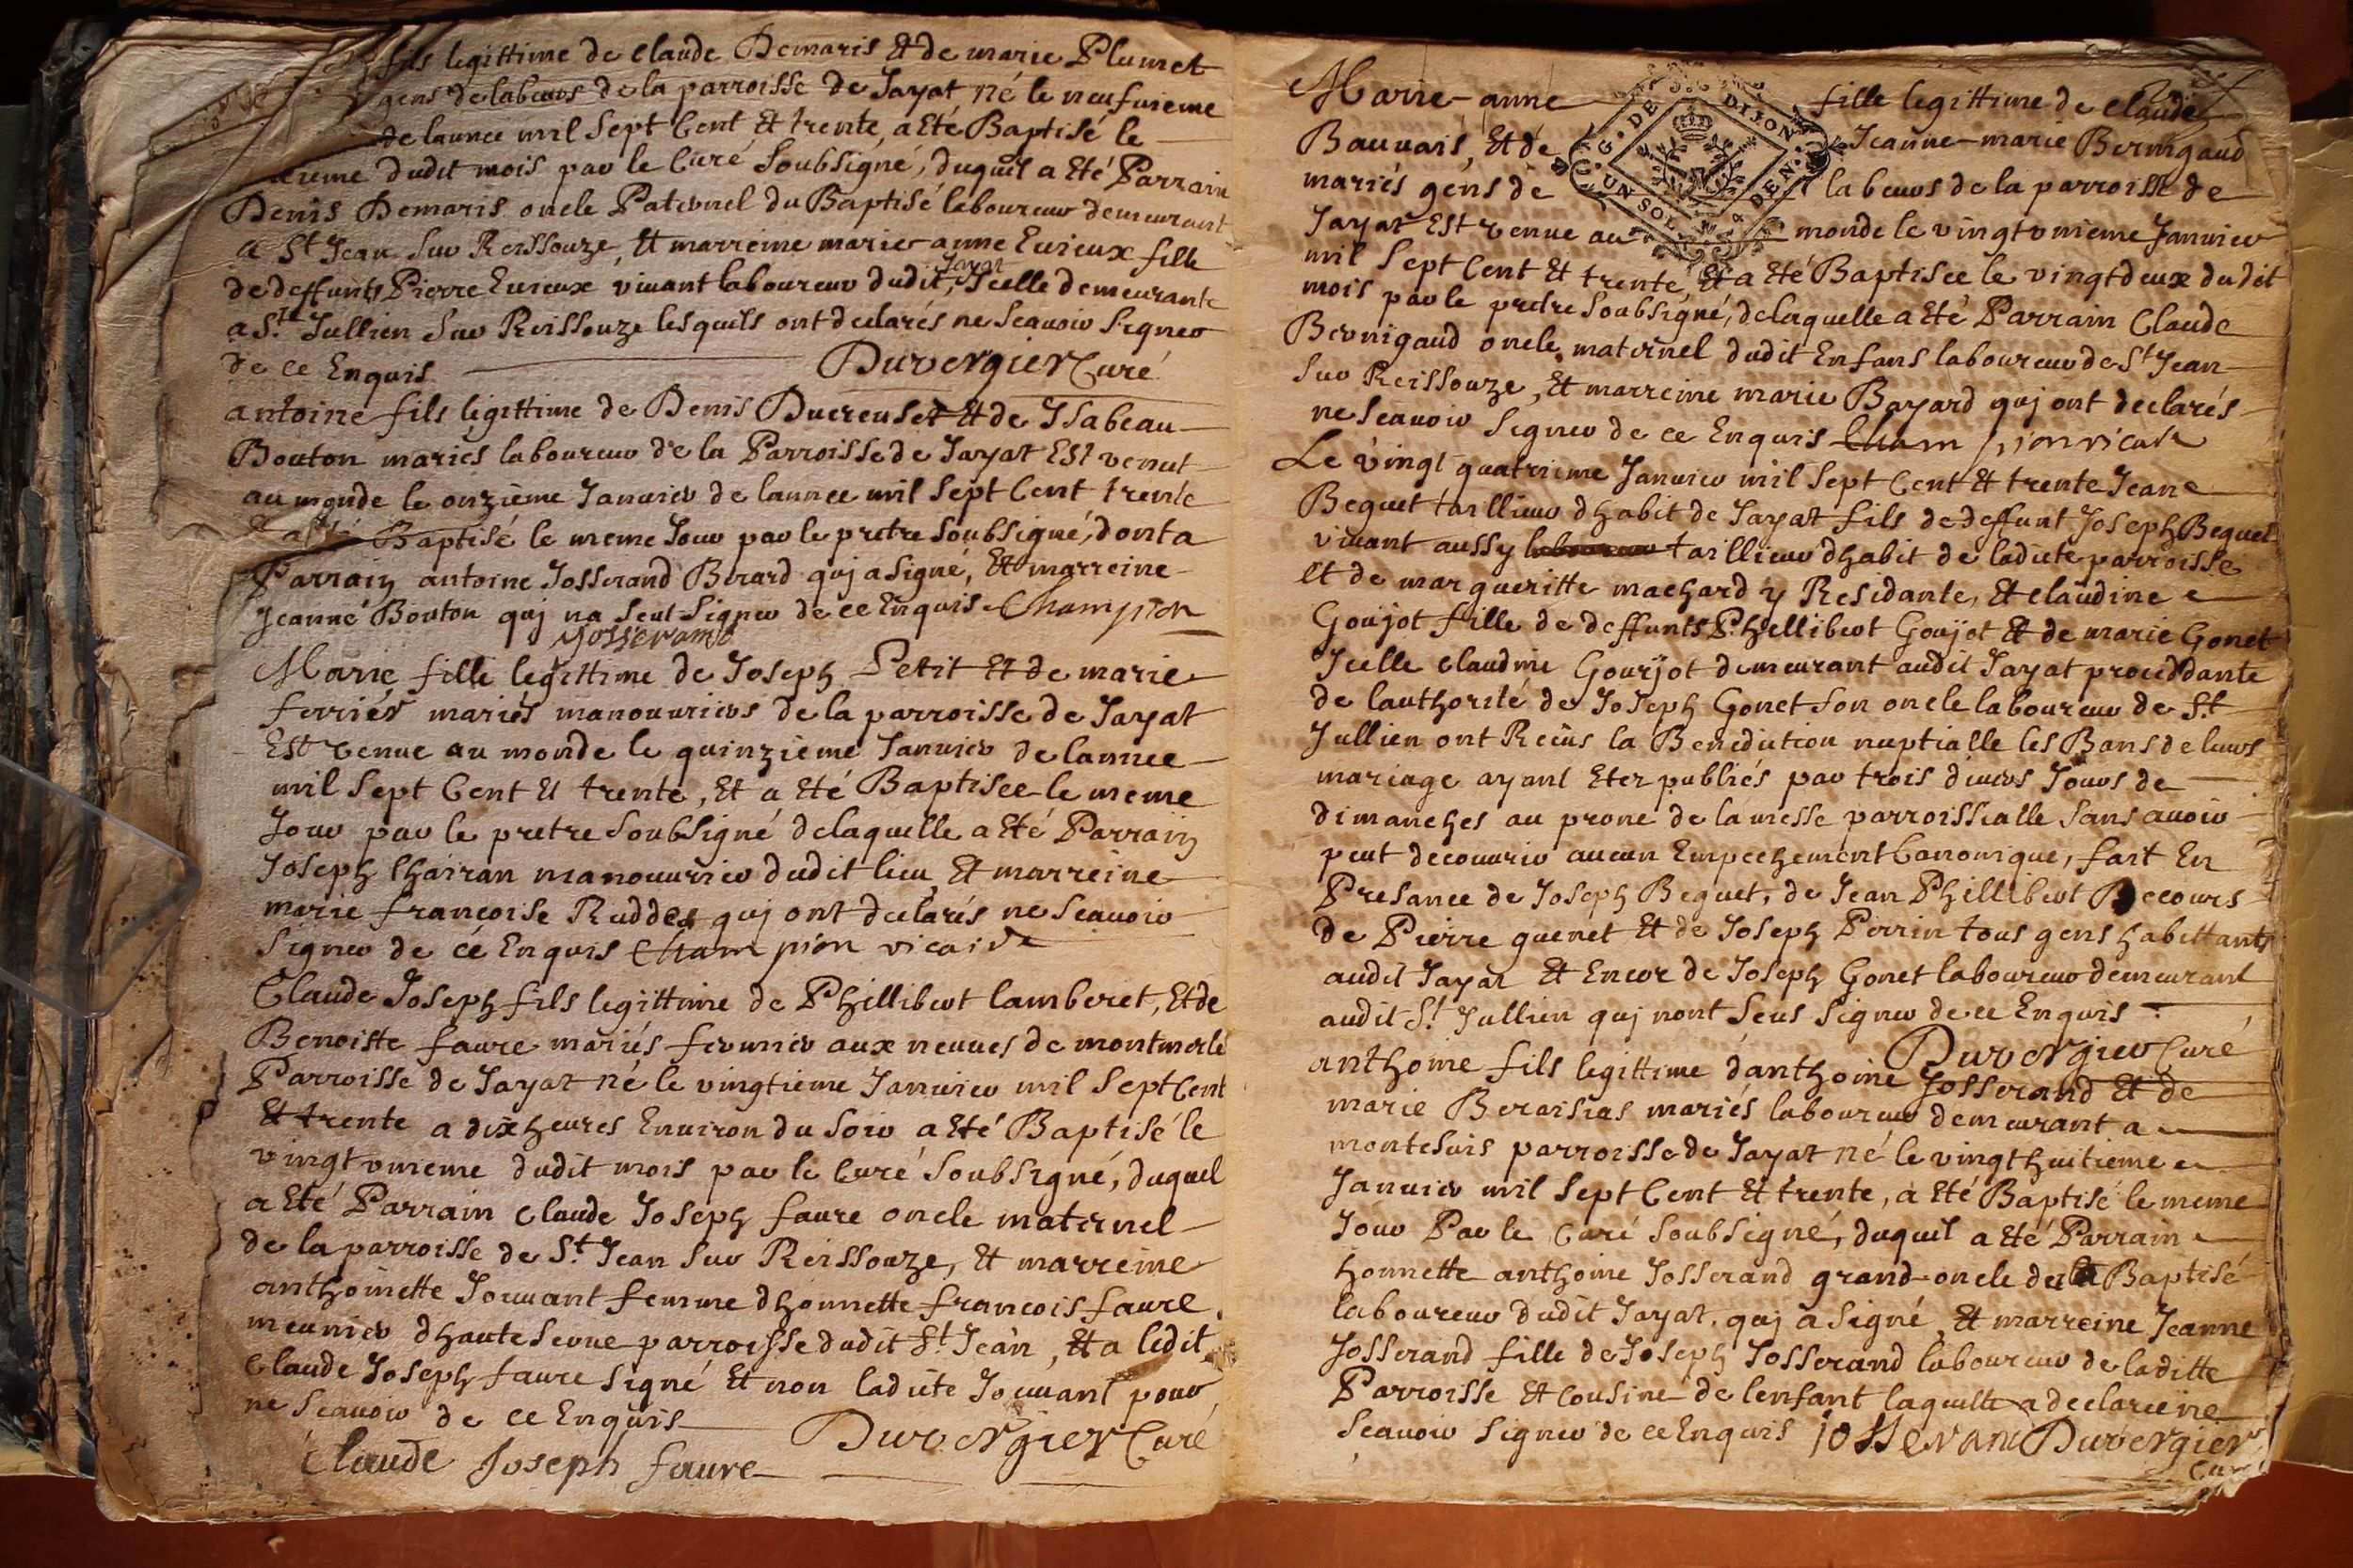 fils legittime de claude Demaris Et de marie Plumet
gens de labeurs de la parroisse de Jayat né le neufuieme
de lannee mil Sept Cent Et trente, a Eté Baptisé le
dudit mois par le Curé Soubsigné, duquel a Eté Parrain
Denis Demaris oncle Paternel du Baptisé laboureur demeurant
a St Jean Sur Reissouze, Et marreine marie-anne Eurieux fille
de deffunts Pierre Eurieux viuant laboureur dudit, Jayat Icelle demeurante
a St. Jullien Sur Reissouze lesquels ont declarés ne Scauoir Signer
de ce Enquis Duvergier Curé
antoine fils legittime de Denis Ducreuset Et de Isabeau
Bouton mariés laboureur de la Parroisse de Jayat Est venut
au monde le onzieme Januier de lannee mil Sept Cent trente
Baptisé le meme Jour par le pretre Soubsigné, dont a
Parrain antoine Josserand Berard qui a Signé, Et marreine
Jeanne Bouton qui na Seut Signer de ce Enquis Champion
Josserand
Marie fille legittime de Joseph Petit Et de marie
ferrier mariés manouuriers de la parroisse de Jayat
Est venue au monde le quinzieme Januier de lannee
mil Sept Cent Et trente, Et a Eté Baptisee le meme
Jour par le pretre Soubsigné delaquelle a Eté Parrain
Joseph Chairan manouurier dudit lieu Et marreine
marie francoise Ruddes qui ont declarés ne Scauoir
Signer de ce Enquis Champion vicaire
Claude Joseph fils legittime de Phillibert lamberet, Et de
Benoiste faure mariés fermier aux neuues de montmerle
Parroisse de Jayat né le vingtieme Januier mil Sept Cent
Et trente a dix heures Enuiron du Soir a Eté Baptisé le
vingt vnieme dudit mois par le Curé Soubsigné, duquel
a Eté Parrain Claude Joseph faure oncle maternel
de la parroisse de St. Jean Sur Reissouze, Et marreine
anthoinette Jouuant femme dhonnette francois faure
meunier dhauteserue parroisse dudit St. Jean, Et a ledit
Claude Joseph faure Signé Et non ladite Jouuant pour
ne Scauoir de ce Enquis Duvergier Curé
Claude Joseph faure
Marie-anne fille legittime de Claude
Bauuais, Et de Jeanne-marie Bernigaud
mariés gens de labeurs de la parroisse de
Jayat Est venue au monde le vingtvnieme Januier
mil Sept Cent Et trente, Et a Eté Baptisee le vingtdeux dudit
mois par le pretre Soubsigné, delaquelle a Eté Parrain Claude
Bernigaud oncle maternel dudit Enfans laboureur de St Jean
Sur Reissouze, Et marreine marie Bayard qui ont declarés
ne Scauoir Signer de ce Enquis Champion vicaire
G. DE DIJON
UN SOL 4 DEN.
Le vingt quatrieme Januier mil Sept Cent Et trente Jean
Beguet taillieur dhabit de Jayat fils de deffunt Joseph Beguet
viuant aussy laboureur taillieur dhabit de ladite parroisse
et de margueritte machard y Residante, Et claudine
Goujot fille de deffunts Phellibert Goujot Et de marie Gonet
Icelle claudine Gourjot demeurant audit Jayat proceddante
de lauthorité de Joseph Gonet Son oncle laboureur de St
Jullien ont Recus la Benediction nuptialle les Bans de leurs
mariage ayant Etez publiés par trois diuers Jours de
dimanches au prone de la messe parroissialle Sans auoir
peut decouurir aucun Empechement Canonique, fait En
Presance de Joseph Beguet, de Jean Phillibert Decours
de Pierre guenet Et de Joseph Perrin tous gens habittants
audit Jayat Et Encor de Joseph Gonet laboureur demeurant
audit St. Jullien qui nont Seus Signer de ce Enquis
Duvergier Curé
anthoine fils legittime danthoine Josserand Et de
marie Beraisias mariés laboureur demeurant a
montesuis parroisse de Jayat né le vingt huitieme
Januier mil Sept Cent Et trente, a Eté Baptisé le meme
Jour Par le Curé Soubsigné, duquel a Eté Parrain
honnette anthoine Josserand grand-oncle du Baptisé
laboureur dudit Jayat, qui a Signé, Et marreine Jeanne
Josserand fille de Joseph Josserand laboureur de laditte
Parroisse Et Cousine de lenfant laquelle a declaree ne
Scauoir Signer de ce Enquis Josserand Duvergier
Curé